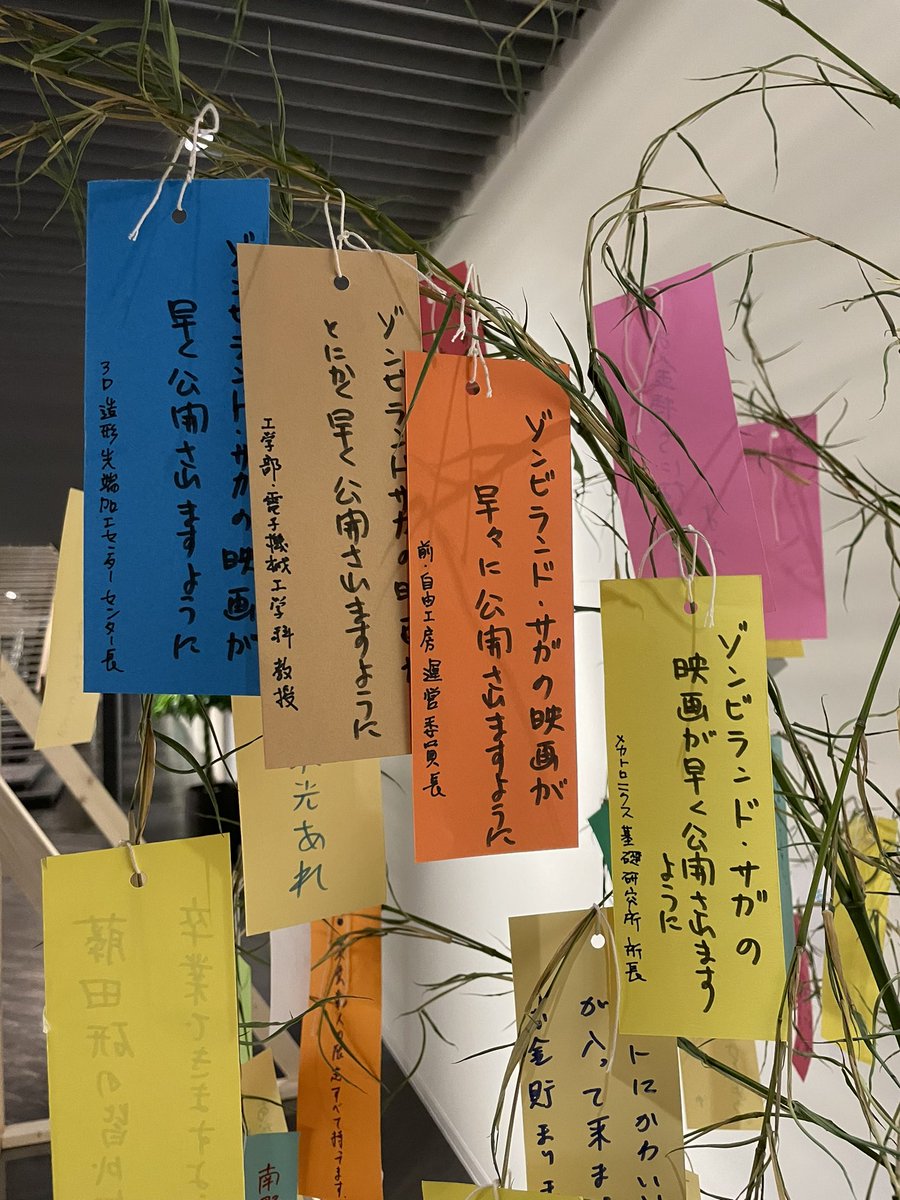 ゾンビランド・サガの映画が
早く公開されますように
3D造形先端加工センターセンター長
ゾンビランドサガの映画が
とにかく早く公開されますように
工学部・電子機械工学科 教授
ゾンビランド・サガの映画が
早々に公開されますように
前・自由工房 運営委員長
ゾンビランド・サガの
映画が早く公開されます
ように
メカトロニクス基礎研究所 所長
光あれ
卒業できますよ
藤田研の皆が
トにかわい
が入って来ま
お金貯まりま
すべて持ちます
南